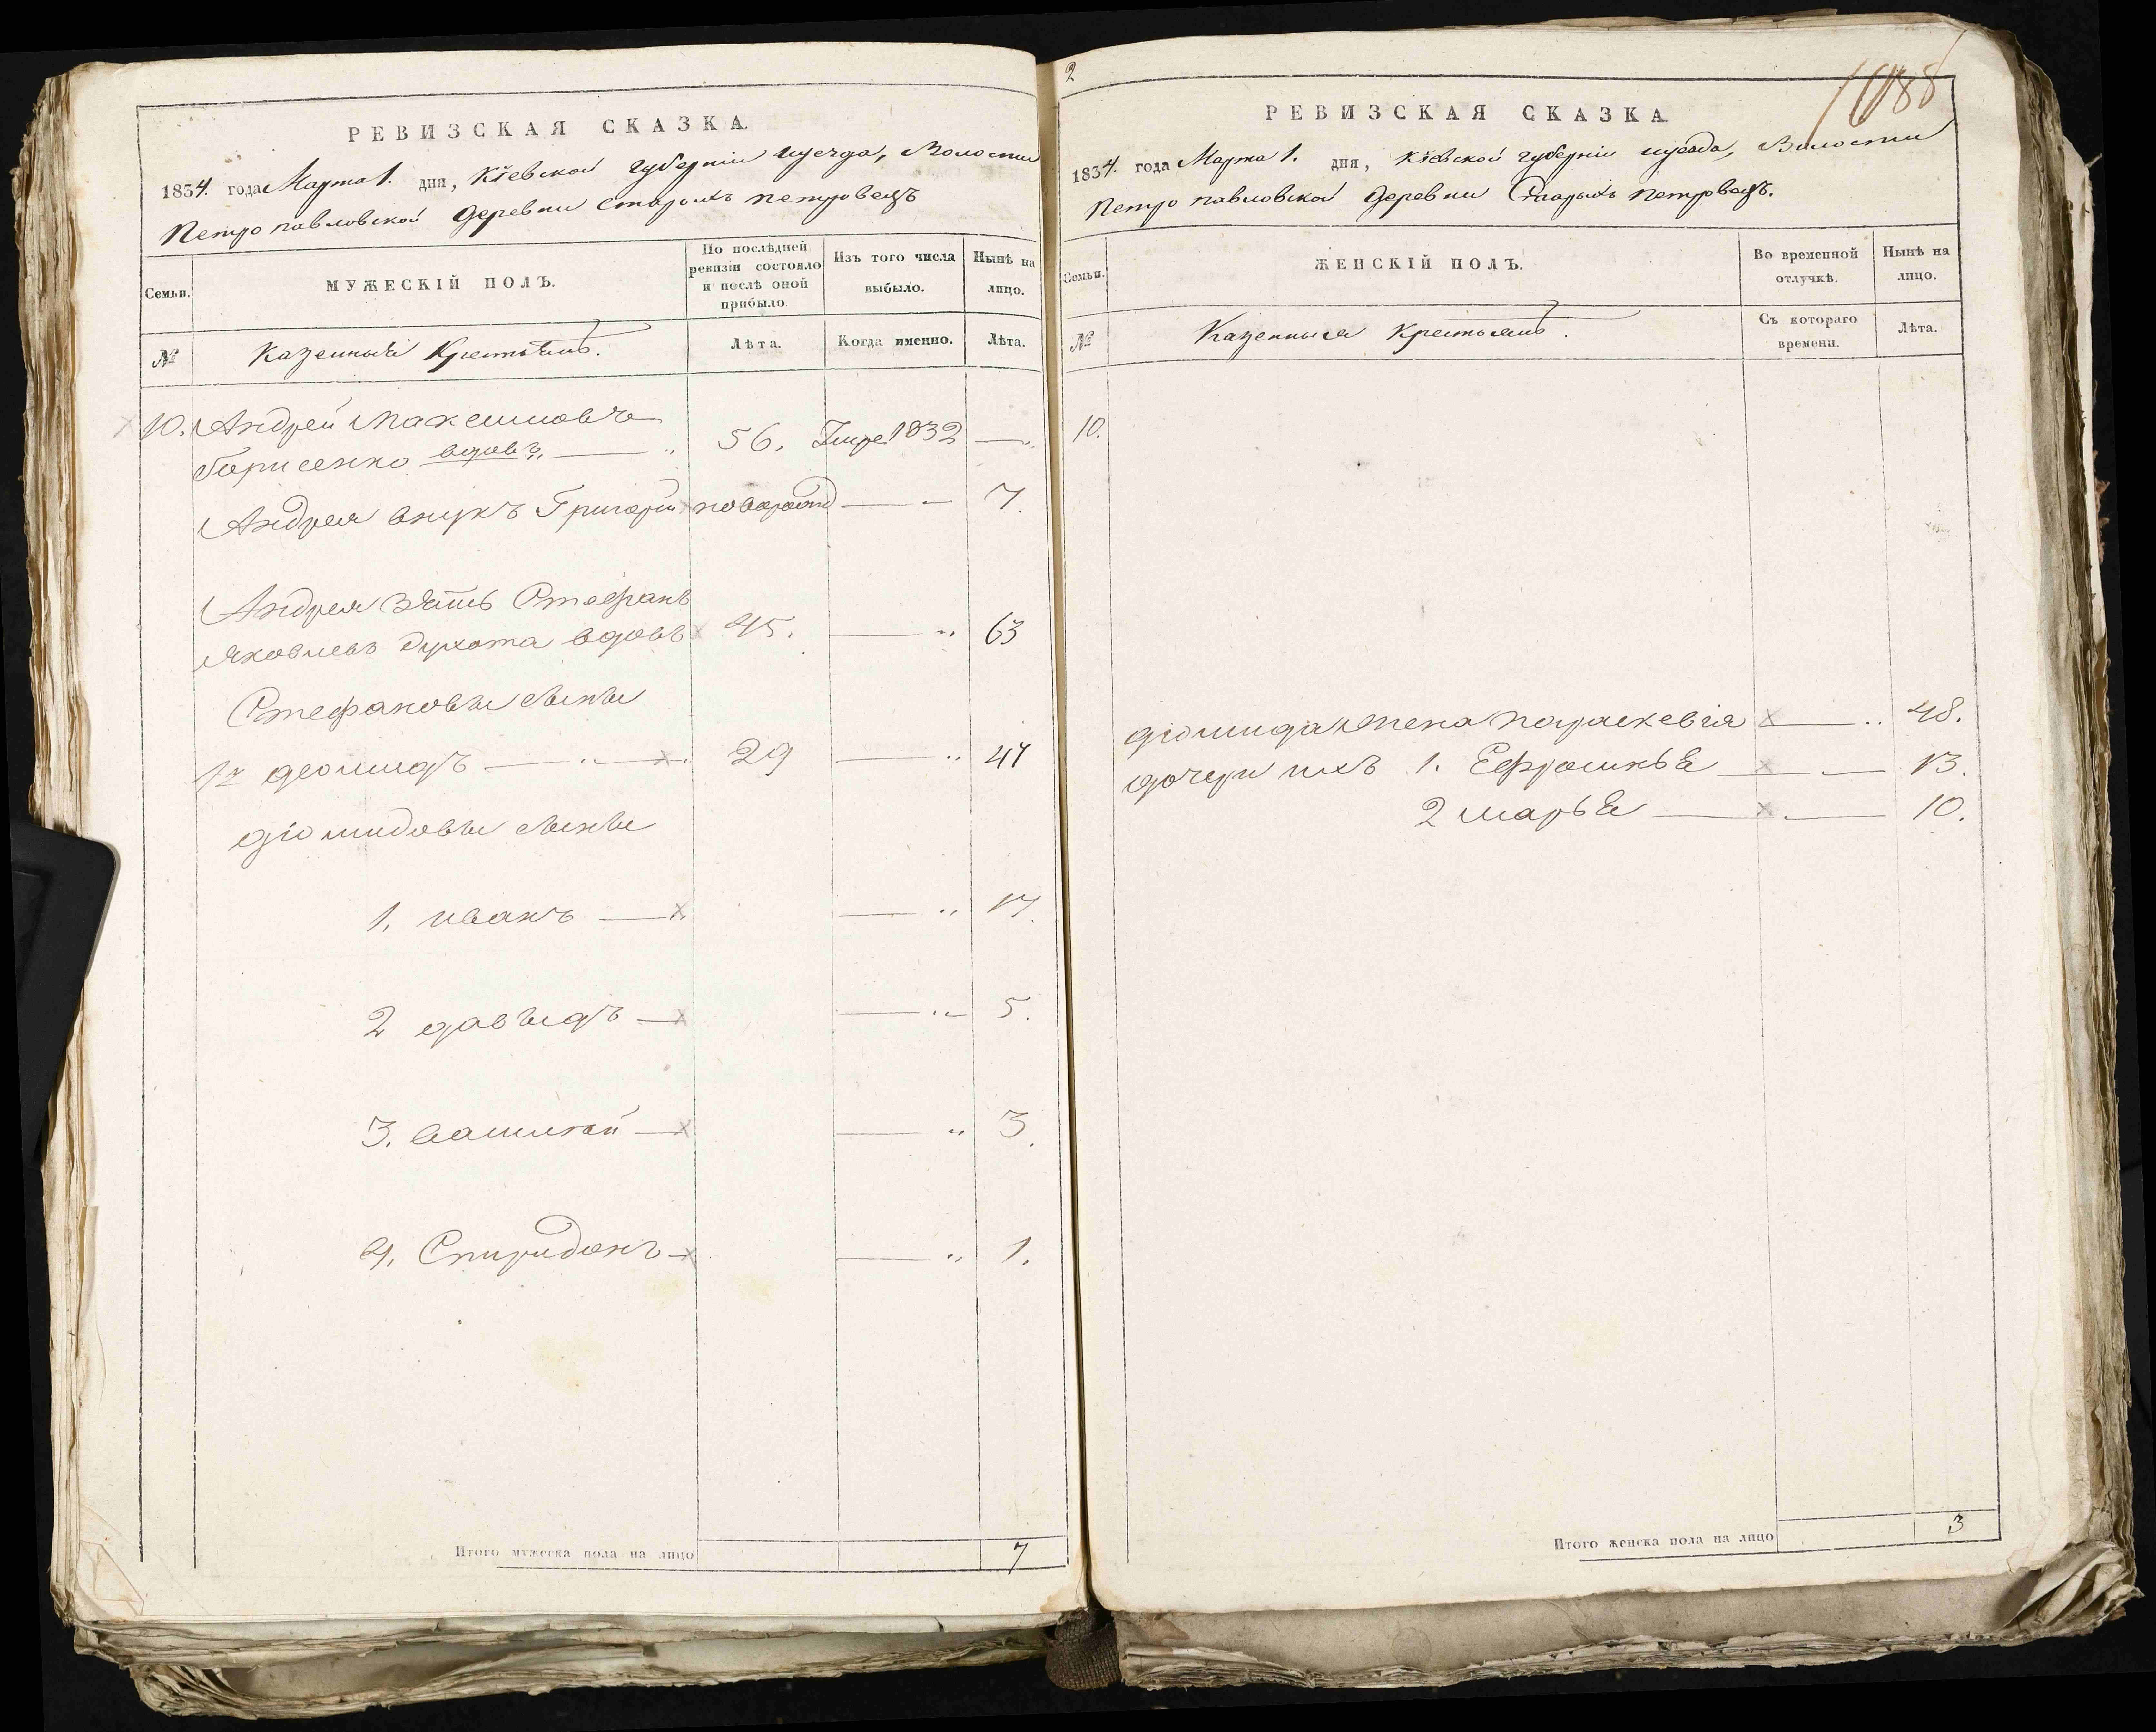 РЕВИЗСКАЯ СКАЗКА.
1834. года Марта 1. дня, Кіевской губерніи уезда, Волости
Петропавловской деревни Старыхъ Петровецъ
Семьи.
МУЖЕСКІЙ ПОЛЪ.
По послѣдней ревизіи состояло и послѣ оной прибыло.
Изъ того числа выбыло.
Нынѣ на лицо.
№
Казенныя Крестьянъ.
Лѣта.
Когда именно.
Лѣта.
10. Андрей Максимовъ
Борисенко вдовъ 56. Умре 1832
Андрея внукъ Григорій новорожд 7.
Андрея Зять Стефанъ
Яковлевъ Духота вдовъ 45. 63
Стефановы сыны
1й деомидъ 29 47
діомидовы сыны
1. иванъ 17.
2 давыдъ 5.
3. василій 3.
4. Спиридонъ 1.
Итого мужеска пола на лицо 7
2
1088
РЕВИЗСКАЯ СКАЗКА
1834. года Марта 1. дня, Кіевской губерніи уезда, Волости
Петропавловской деревни Старыхъ Петровецъ.
Семьи.
ЖЕНСКІЙ ПОЛЪ.
Во временной отлучкѣ.
Нынѣ на лицо.
№
Казенныя Крестьянъ.
Съ котораго времени.
Лѣта.
10.
діомида жена параскевія 48.
дочери ихъ 1. Ефросинья 13.
2 марья 10.
Итого женска пола на лицо 3